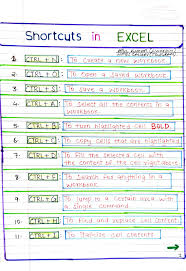 Shortcuts in EXCEL
1. CTRL + N: To create a new workbook.
2. CTRL + O: To open a saved workbook.
3. CTRL + S: To save a workbook.
4. CTRL + A: To select all the contents in a
workbook.
5. CTRL + B: To turn highlighted cells BOLD.
6. CTRL + C: To copy cells that are highlighted
7. CTRL + D: To fill the selected cell with
the content of the cell right above
8. CTRL + F: To search for anything in a
workbook.
9. CTRL + G: To jump to a certain area with
a single command
10. CTRL + H: To find and replace cell contents.
11. CTRL + I: To italicise cell contents